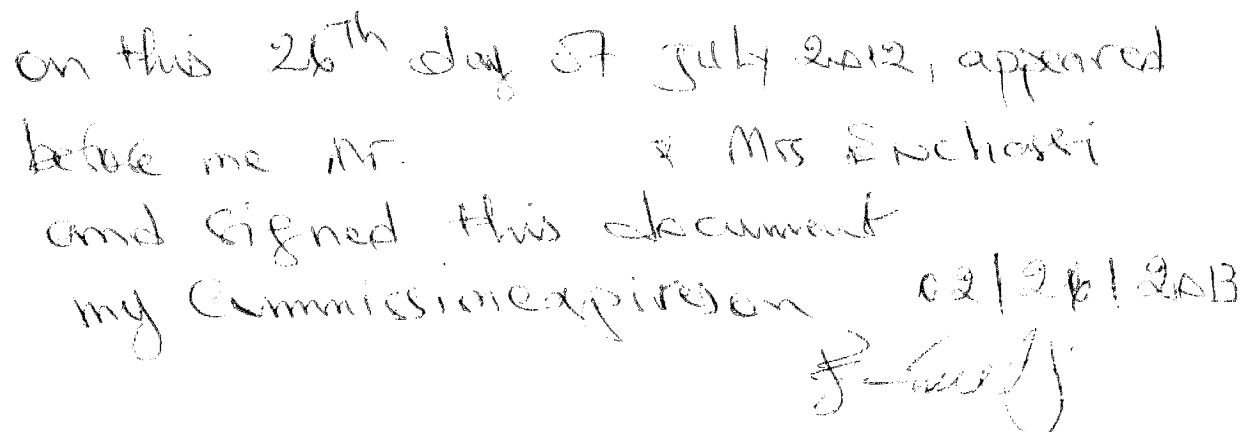 on this 26th day of July 2012, appeared
before me Mr. & Mrs Enchassi
and signed this document
my Commission expires on 02/26/2013